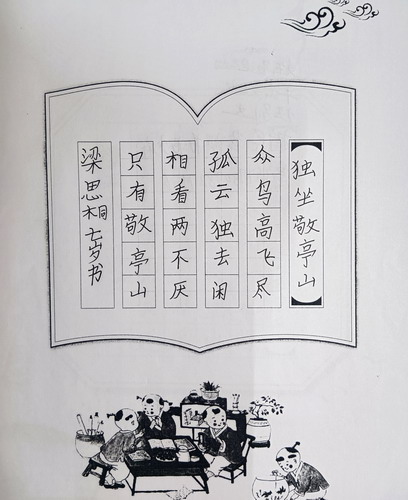 独坐敬亭山
众鸟高飞尽
孤云独去闲
相看两不厌
只有敬亭山
梁思桐七岁书